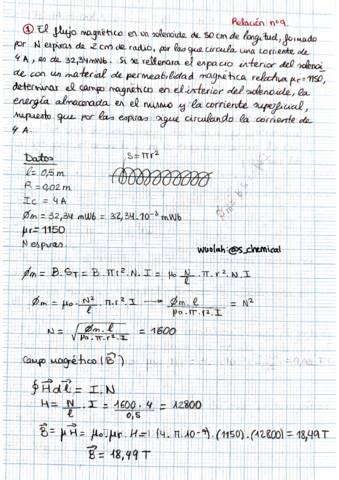 Relación nº9.
① El flujo magnético en un solenoide de 50 cm de longitud, formado
por N espiras de 2 cm de radio, por las que circula una corriente de
4 A, es de 32,34 mWb. Si se rellenara el espacio interior del solenoi
de con un material de permeabilidad magnética relativa μr=1150,
determinar el campo magnético en el interior del solenoide, la
energía almacenada en el mismo y la corriente superficial,
supuesto que por las espiras sigue circulando la corriente de
4 A.
Datos
S=πr²
l= 0,5m
R= 0,02 m
Ic = 4A
Øm = 32,34 mWb = 32,34·10⁻³ mWb
μr= 1150
N espiras.
wuolah:@s_chemical
Øm = B·S_T = B·π·r²·N·I = μ₀ N/l ·π·r²·N·I
Øm = μ₀· N²/l ·π·r²·I → Øm·l / μ₀·π·r²·I = N²
N = √(Øm·l / μ₀·π·r²·I) = 1600
Campo magnético (B⃗)
∮H⃗dl⃗ = I·N
H = N/l · I = 1600·4 / 0,5 = 12800
B⃗ = μH⃗ = μ₀·μr·H = (4·π·10⁻⁷)·(1150)·(12800) = 18,49 T
B⃗ = 18,49 T